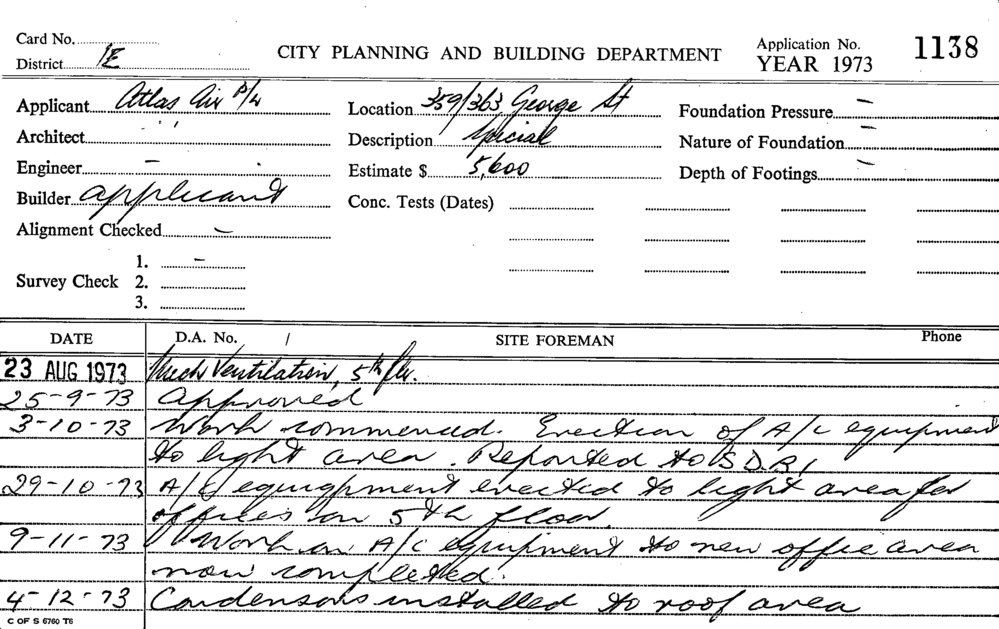 Card No.
District 1E
CITY PLANNING AND BUILDING DEPARTMENT
Application No. 1138
YEAR 1973
Applicant Atlas Air P/L
Location 359/363 George St
Foundation Pressure –
Architect " "
Description Special
Nature of Foundation –
Engineer –
Estimate $ 5,600
Depth of Footings –
Builder applicant
Conc. Tests (Dates)
Alignment Checked –
Survey Check 1. –
2.
3.
DATE D.A. No. / SITE FOREMAN Phone
23 AUG 1973 Mech Ventilation, 5th flr.
25-9-73 Approved
3-10-73 Work commenced. Erection of A/C equipment
to light area. Reported to S.D.B.I
29-10-73 A/C equipment erected to light area for
offices on 5th floor.
9-11-73 Work on A/C equipment to new office area
now completed.
4-12-73 Condensors installed to roof area
C OF S 6760 T6